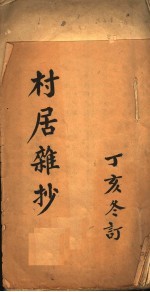 村居雜抄
丁亥冬訂